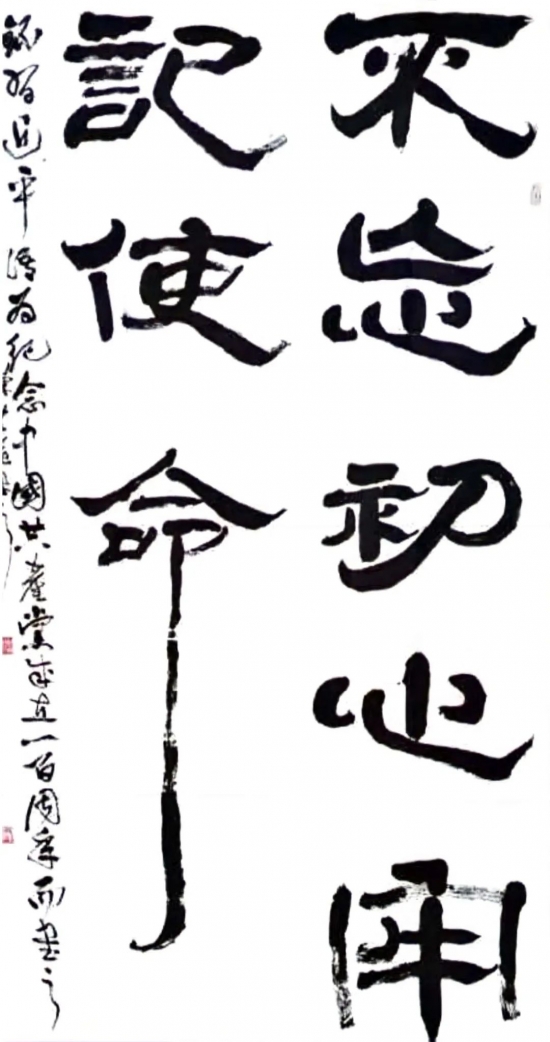 不忘初心牢
記使命
錄習近平語為紀念中國共產黨成立一百周年而書之